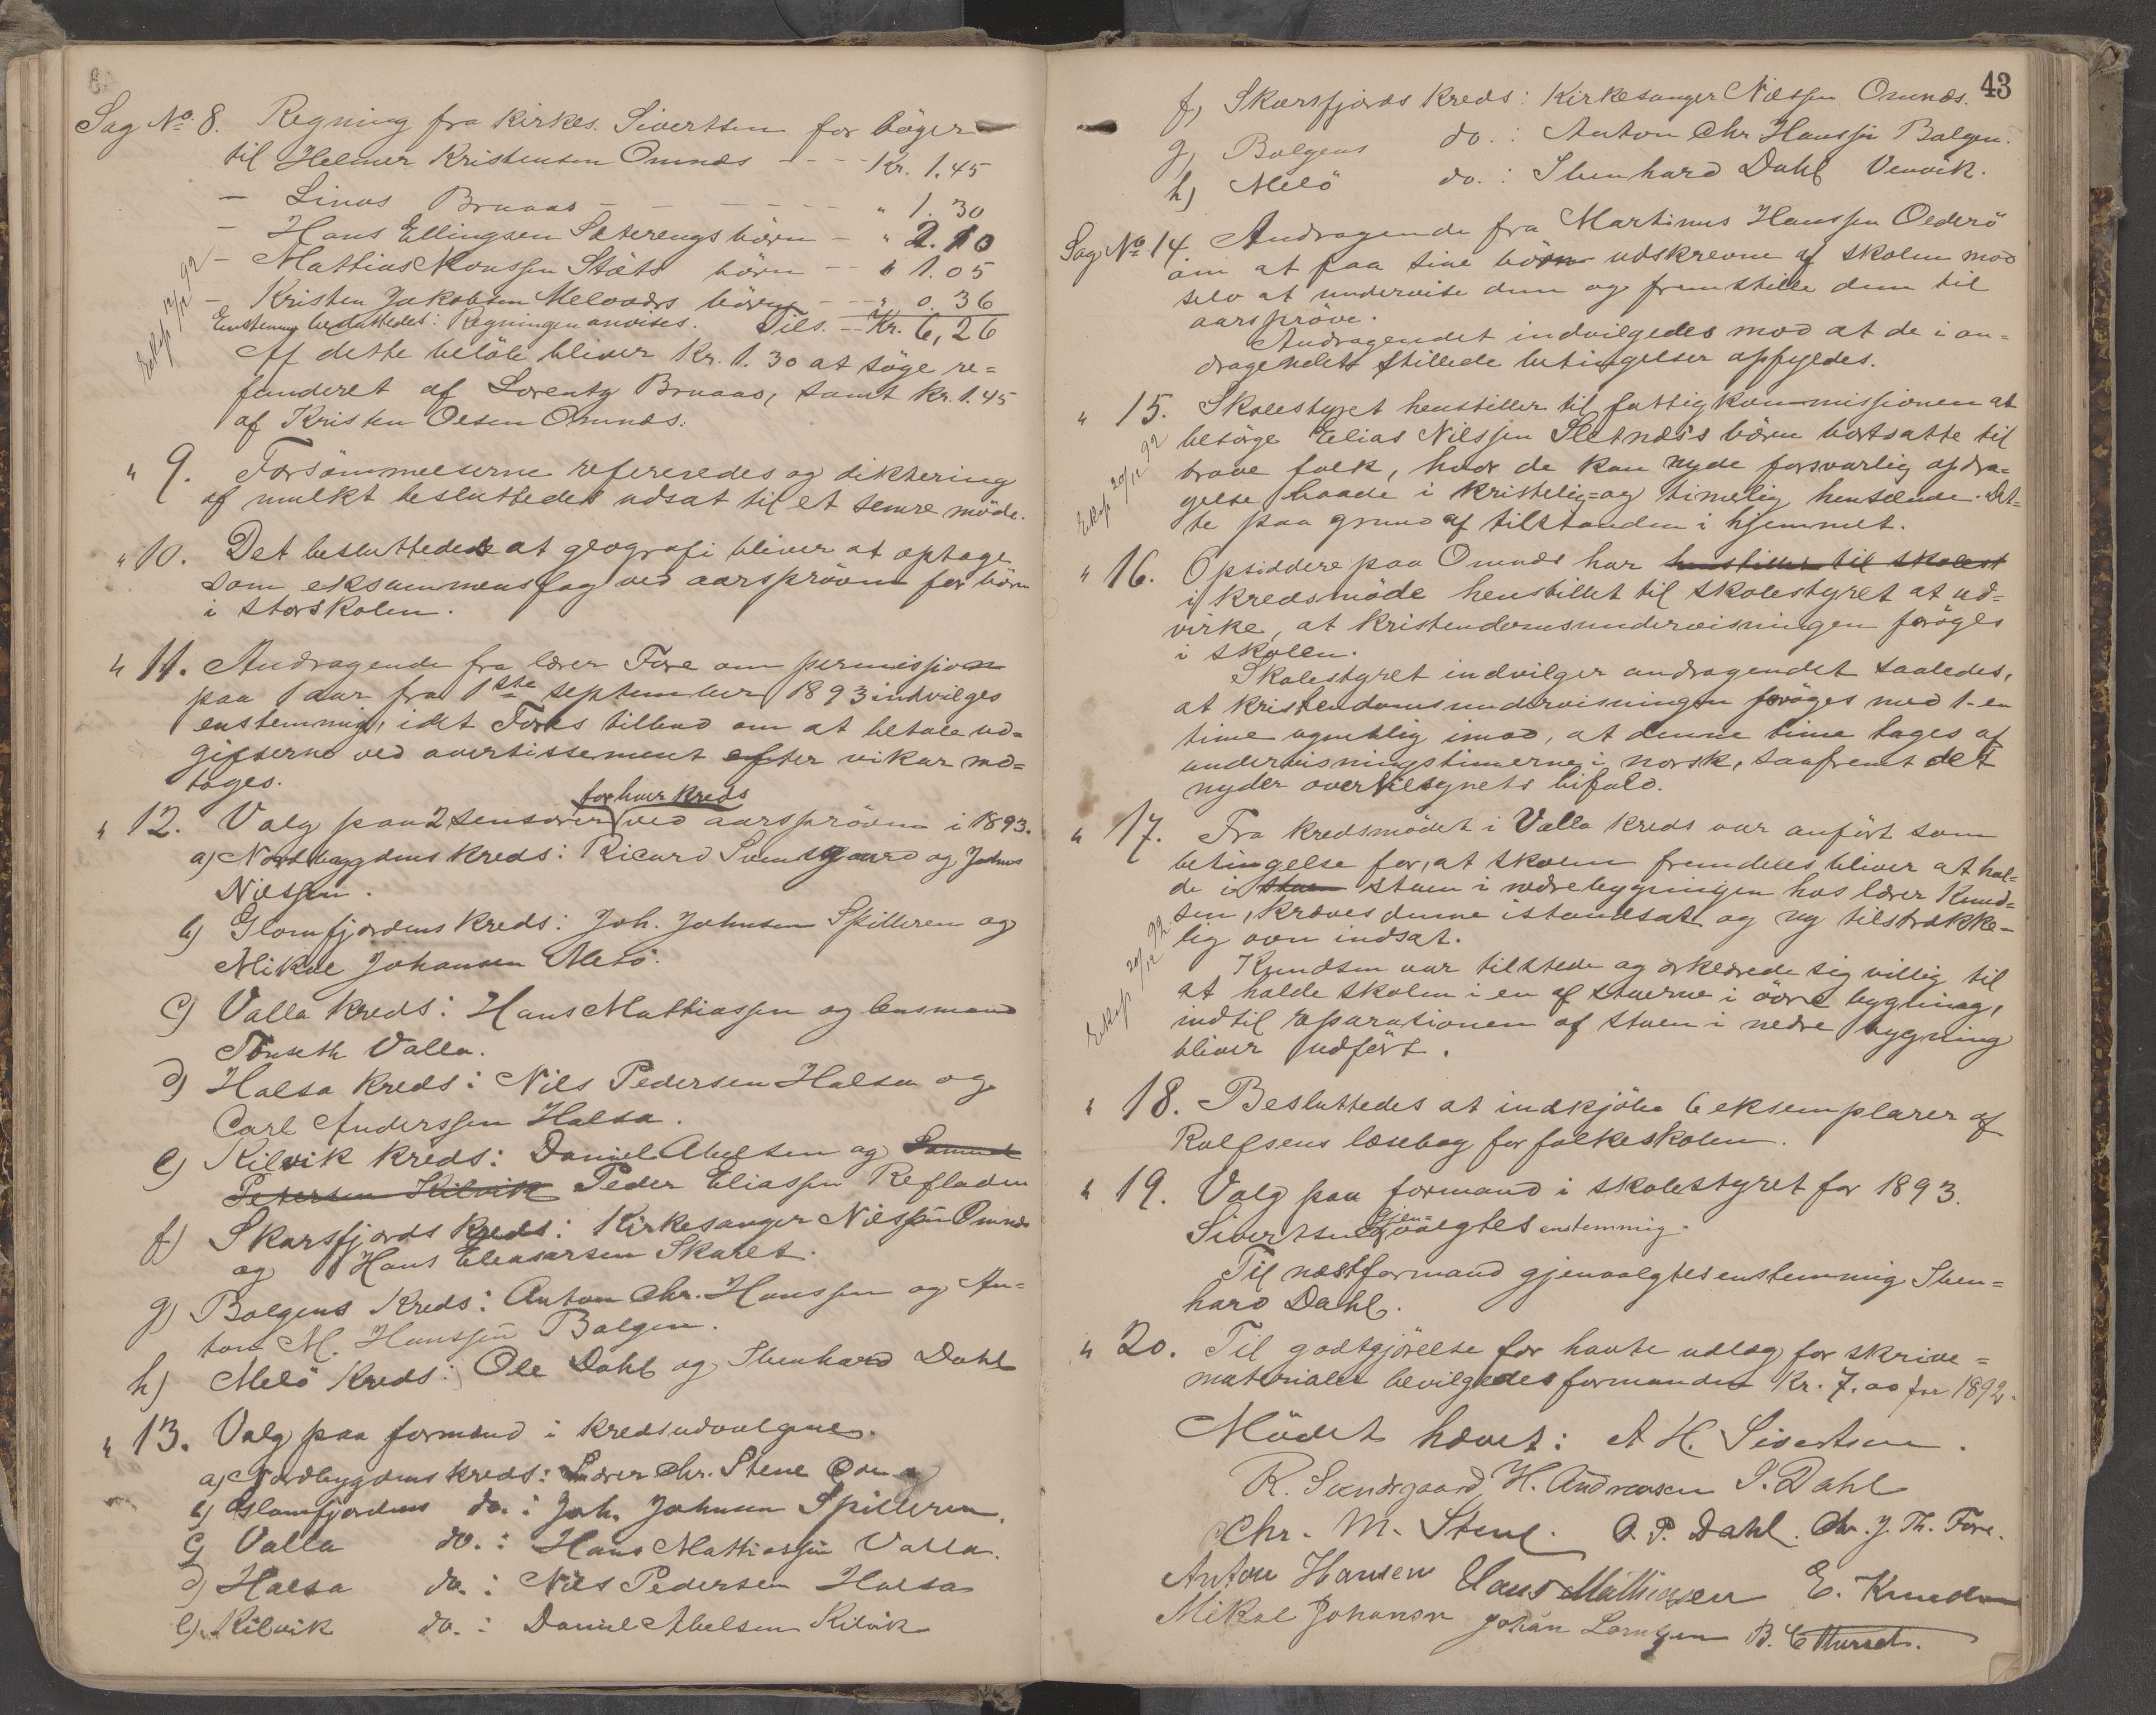 Sag No. 8. Regning fra kirkes. Sivertsen for böger
til Helmer Kristensen Ornnes - - - Kr. 1.45
- Linus Bruaas - - - - - " 1.30
- Hans Ellingsen Sæterengs börn - " 2.10
- Mattias Monssen Stöts börn - - " 1.05
- Kristen Jakobsen Melvoders börn - - " 0,36
Enstemmig besluttedes: Regningen anvises. Tils. - Kr. 6,26
Eksp 12/12 92
Af dette belöb bliver Kr. 1.30 at söge re=
funderet af Lorentz Bruaas, samt kr. 1.45
af Kristen Olsen Ornnes.
" 9. Forsömmelserne refereredes og diktering
af mulkt besluttedes udsat til et senere möde.
" 10. Det besluttedes at geografi bliver at optage
som eksammensfag ved aarspröven for börn
i storskolen.
" 11. Andragende fra lærer Fore om permission
paa 1 aar fra 1ste september 1893 indvilges
enstemmig, idet Fores tilbud om at betale ud=
gifterne ved avertissement efter vikar mod=
tages.
" 12. Valg paa 2 sensorer for hver kreds ved aarspröven i 1893.
a) Nordbygdens kreds: Ricard Svendsgaard og Johns
Nilssen.
b) Glomfjordens kreds: Joh. Johnsen Spilderen og
Mikal Johansen Melö.
c) Valla kreds: Hans Mattiassen og lensmand
Tönseth Valla.
d) Halsa kreds: Nils Pedersen Halsa og
Carl Anderssen Halsa.
e) Kilvik kreds: Daniel Abelsen og Samuel
Petersen Kilvik Peder Eliassen Refladen
f) Skarsfjords kreds: Kirkesanger Nilssen Ornnes
og Hans Eleasarsen Skaret.
g) Bolgens Kreds: Anton Chr. Hanssen og An=
ton M. Hanssen Bolgen.
h) Melö Kreds: Ole Dahl og Stenhard Dahl
" 13. Valg paa formænd i kredsudvalgene.
a) Nordbygdens kreds: Lærer Chr. Stene
b) Glomfjordens do.: Joh. Johnsen Spilderen.
c) Valla do.: Hans Mattiassen Valla.
d) Halsa do.: Nils Pedersen Halsa
e) Kilvik do.: Daniel Abelsen Kilvik
43
f) Skarsfjords kreds: Kirkesanger Nilssen Ornnes.
g) Bolgens do.: Anton Chr Hanssen Bolgen.
h) Melö do.: Stenhard Dahl Venvik.
Sag No 14. Andragende fra Martinus Hanssen Oldero
om at faa sine börn udskrevne af skolen mod
selv at undervise dem og fremstille dem til
aarspröve.
Andragendet indvilgedes mod at de i an=
dragendet stillede betingelser opfyldes.
" 15. Skolestyret henstiller til fattigkommissionen at
besörge Elias Nilssen Sletnes's börn bortsatte til
brave folk, hvor de kan nyde forsvarlig opdra=
gelse baade i kristelig= og timelig henseende. Det=
te paa grund af tilstanden i hjemmet.
Eksp 20/12 92
" 16. Opsiddere paa Ornnes har henstillet til skolest
i kredsmöde henstillet til skolestyret at ud=
virke, at kristendomsundervisningen foröges
i skolen.
Skolestyret indvilger andragendet saaledes,
at kristendomsundervisningen foröges med 1-en
time ugentlig imod, at denne time tages af
undervisningstimerne i norsk, saafremt det
nyder overtilsynets bifald.
" 17. Fra kredsmödet i Valla kreds var anfört som
betingelse for, at skolen fremdeles bliver at hol=
de i stuen stuen i nedrebygningen hos lærer Knud=
sen, kræves denne istandsat og ny tilstrække=
lig ovn indsat.
Eksp 20/12 92
Knudsen var tilstede og erklærede sig villig til
at holde skolen i en af stuerne i övre bygning,
indtil reparationen af stuen i nedre bygning
bliver udfört.
" 18. Besluttedes at indkjöbe 6 eksemplarer af
Rolfsens læsebog for folkeskolen.
" 19. Valg paa formand i skolestyret for 1893.
Sivertsen gjen= valgtes enstemmig.
Til næstformand gjenvalgtes enstemmig Sten=
hard Dahl.
" 20. Til godtgjörelse for havte udlæg for skrive=
materialer bevilgedes formanden Kr. 7.00 for 1892.
Mödet hævet: A H. Sivertsen.
R. Svendsgaard H. Andreasen S. Dahl
Chr. M. Stene. O. P. Dahl. Chr. J. Th. Fore.
Anton Hansen Hans Mathiassen E. Knudsen
Mikal Johansen Johan Lorntsen